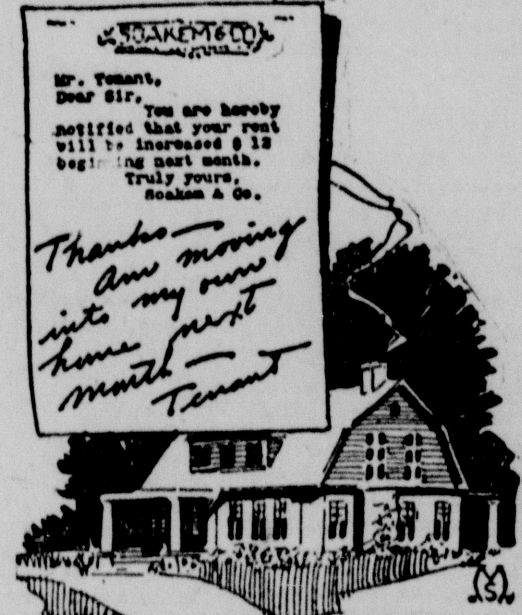 SOAKEM & CO.
Mr. Tenant,
Dear Sir,
You are hereby
notified that your rent
will be increased $ 12
beginning next month.
Truly yours,
Soakem & Co.
Thanks —
am moving
into my own
home next
month —
Tenant